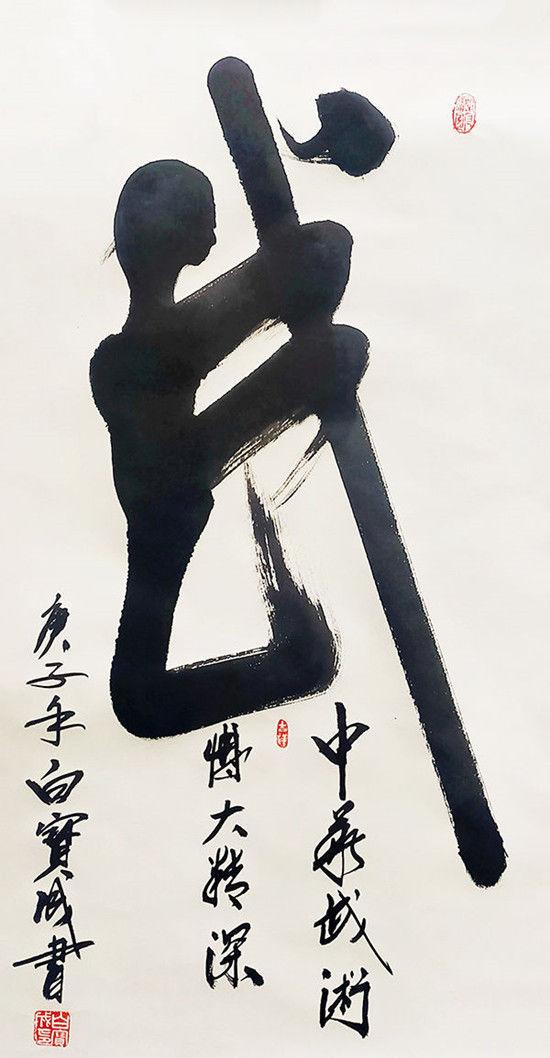 武
中華武術
博大精深
庚子年白寶成書